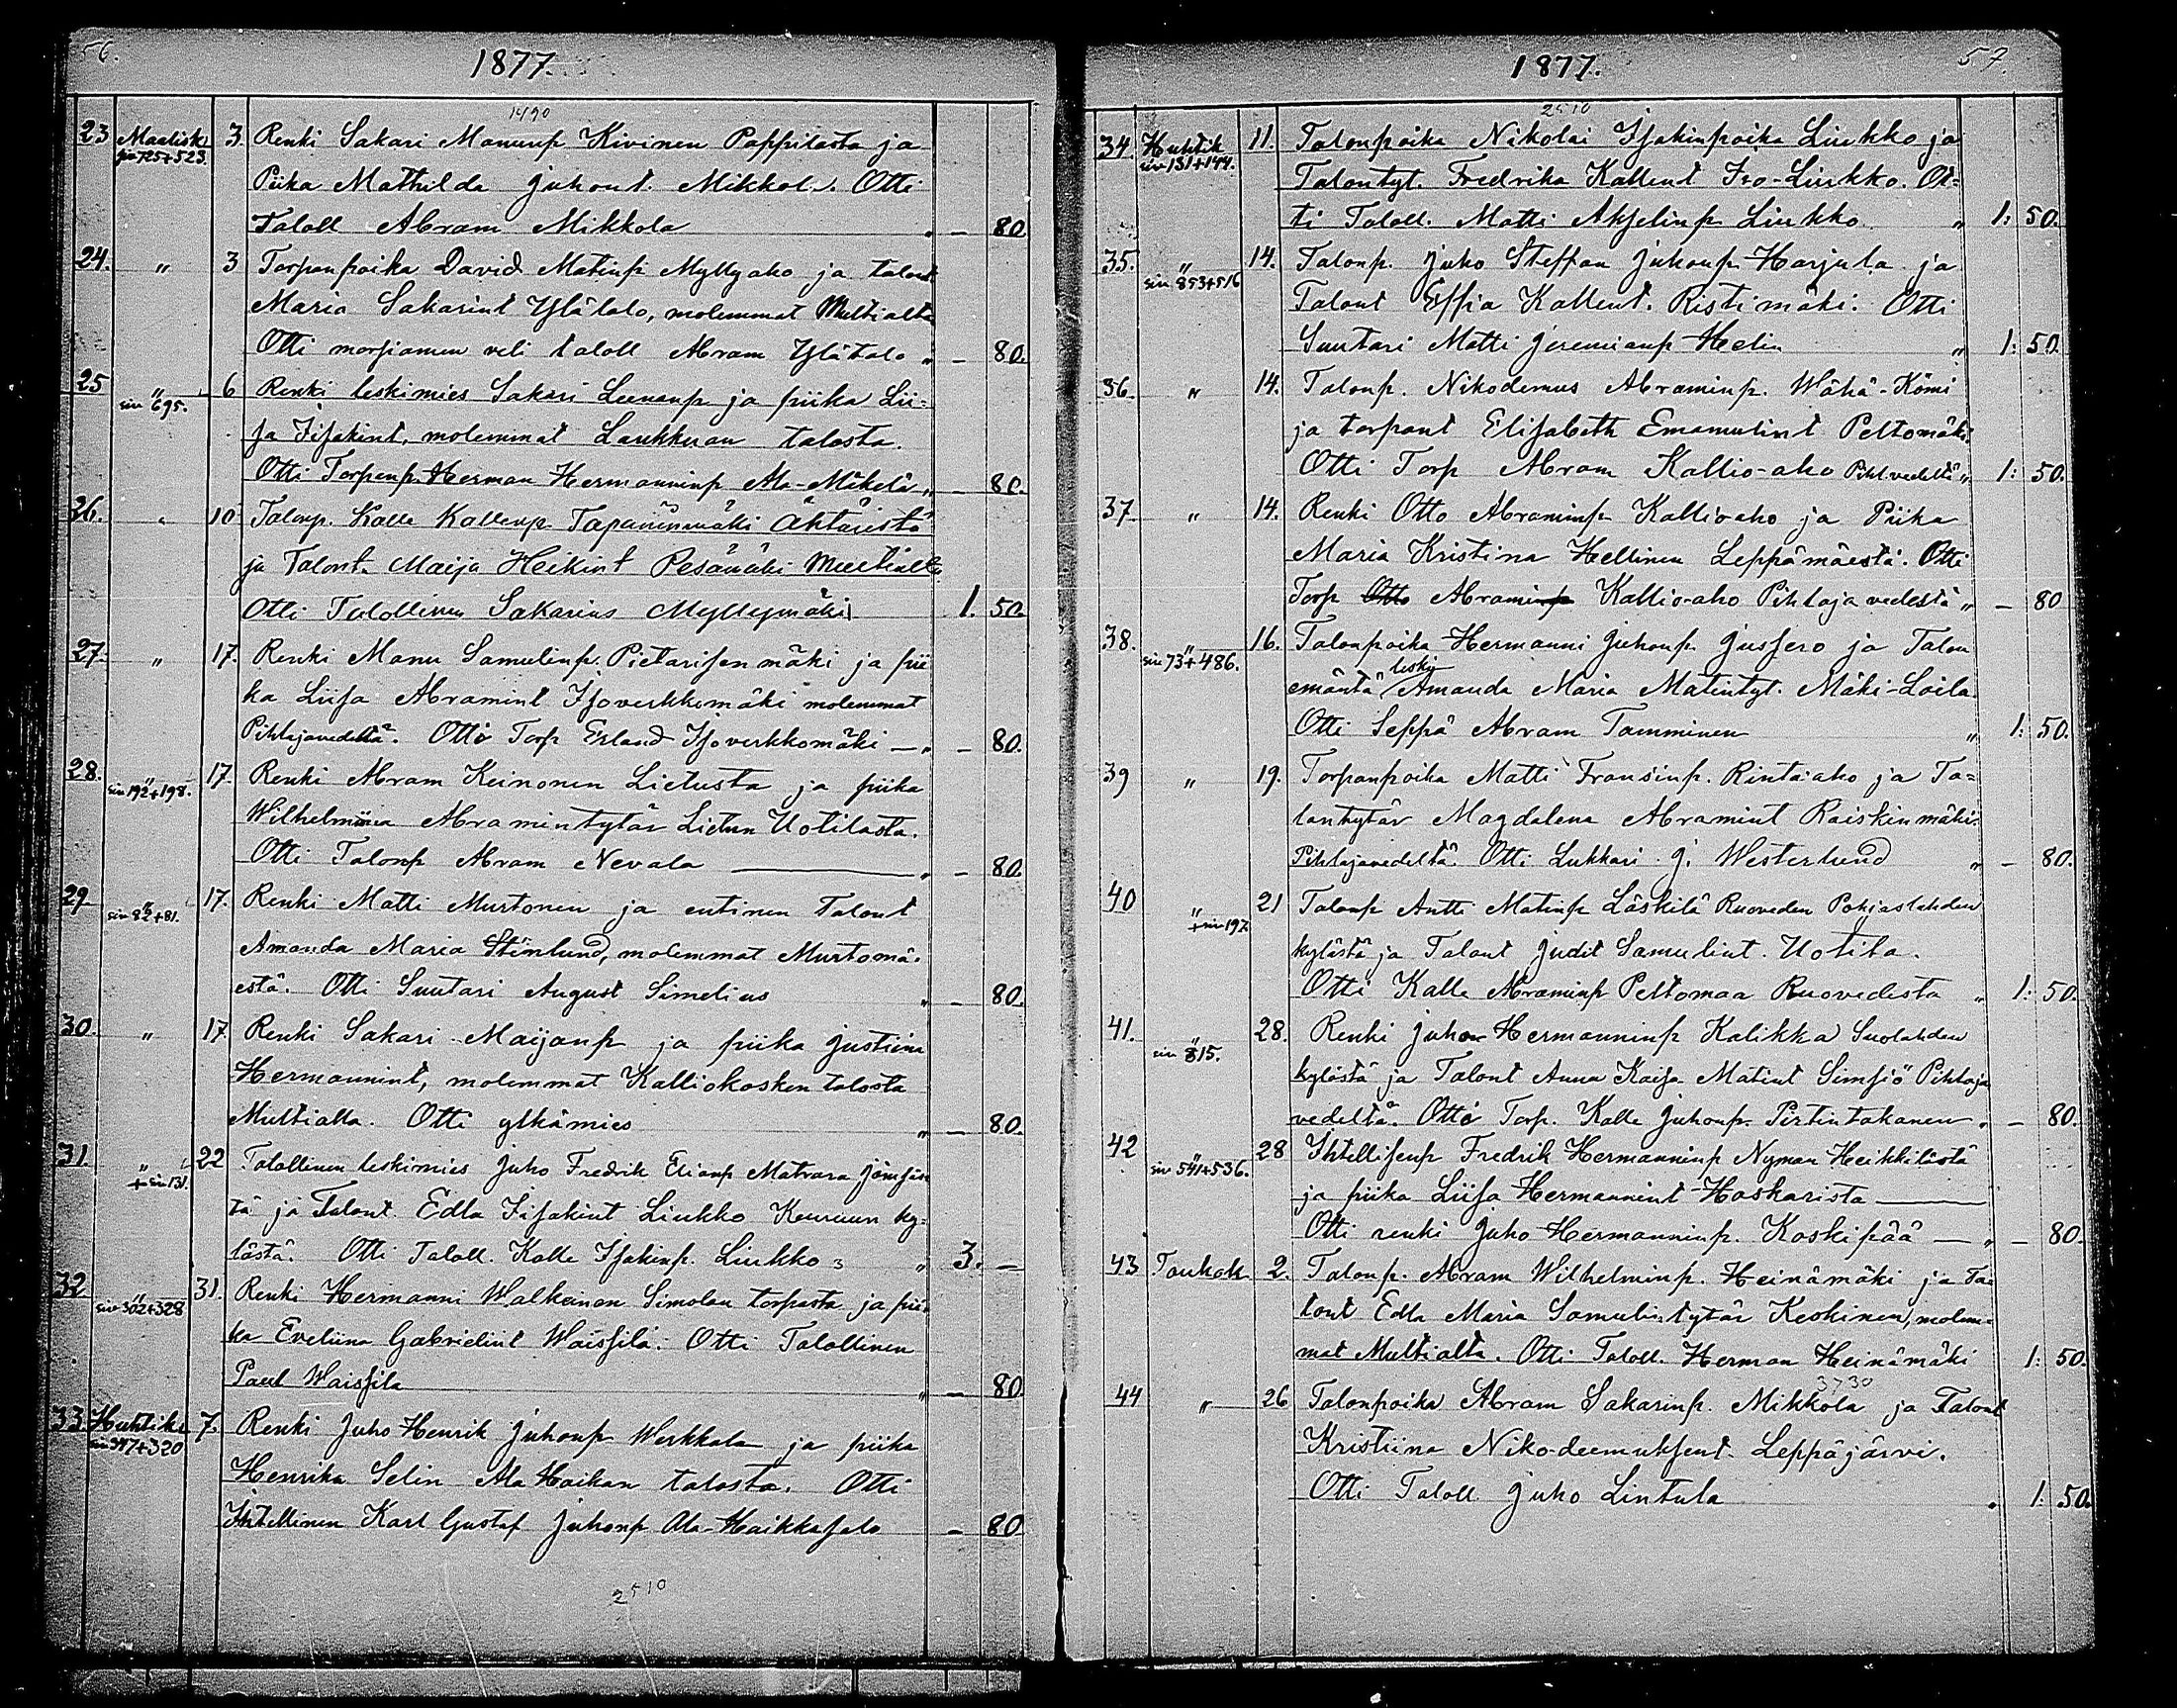 56.
1877.
1490
23 Maalisk. 3 Renki Sakari Manunp Kivinen Pappilasta ja
siv 725+523. Piika Mathilda Juhont. Mikkol. Otti
Taloll Abram Mikkola „ — 80.
24. „ 3 Torpanpoika David Matinp Myllyaho ja talont
Maria Sakarint Ylätalo, molemmat Multialta
Otti morsiamen veli taloll Abram Ylätalo „ — 80.
25 „ 6 Renki leskimies Sakari Leenanp ja piika Lii=
siv 695. sa Iisakint, molemmat Laukkuan talosta.
Otti Torpanp. Herman Hermanninp Ala-Mäkelä „ — 80.
26. „ 10 Talonp. Kalle Kallenp. Tapaninmäki Ähtäristä
ja Talont. Maija Heikint Pesämäki Multialta
Otti Talollinen Sakarius Myllymäki 1. 50.
27. „ 17. Renki Manu Samulinp. Pietarisenmäki ja pii
ka Liisa Abramint Isoverkkomäki molemmat
Pihlajavedeltä. Otti Torp Erland Isoverkkomäki — „ — 80.
28. „ 17. Renki Abram Keinonen Lietusta ja piika
siv 192+198. Wilhelmiina Abramintytär Lietun Uotilasta.
Otti Talonp Abram Nevala „ — 80.
29 „ 17. Renki Matti Murtonen ja entinen Talont
siv 82+81. Amanda Maria Stenlund, molemmat Murtomä=
estä. Otti Suutari August Simelius „ — 80.
30. „ 17. Renki Sakari Maijanp ja piika Justiina
Hermannint, molemmat Kalliokosken talosta
Multialla. Otti ylkämies „ — 80.
31. „ 22 Talollinen leskimies Juho Fredrik Elianp Matvara Jämsäs
+ siv 131. tä ja Talont. Edla Iisakint Liukko Keuruun ky=
lästä. Otti Taloll. Kalle Isakinp. Liukko „ 3. —
32 „ 31. Renki Hermanni Walkeinen Simolan torpasta, ja pii
siv 302+328 ka Eveliina Gabrielint Waissilä. Otti Talollinen
Paul Waissila „ — 80
33 Huhtik. 7. Renki Juho Henrik Juhonp Werkkala ja piika
siv 347+320 Henrika Selin Ala Haikan talosta. Otti
Ihtellinen Karl Gustaf Juhonp Ala-Haikkasalo — 80
2510
57.
1877.
2510
34. Huhtik 11. Talonpoika Nikolai Isakinpoika Liukko ja
siv 131+144. Talontyt. Fredrika Kallent Iso-Liukko. Ot=
ti Taloll. Matti Akselinp Liukko „ 1: 50.
35. „ 14. Talonp. Juho Steffan Juhonp Harjula ja
siv 853+516 Talont Effia Kallent. Ristimäki. Otti
Suutari Matti Jeremianp Helin „ 1: 50.
36. „ 14. Talonp. Nikodemus Abraminp. Wähä-Kömi
ja torpant Elisabeth Emanuelint Peltomäki.
Otti Torp Abram Kallio-aho Pihl.vedeltä „ 1: 50.
37 „ 14. Renki Otto Abraminp Kallioaho ja Piika
Maria Kristina Hellinen Leppämäestä. Otti
Torp Otto Abraminp Kallio-aho Pihlajavedestä „ — 80
38. „ 16. Talonpoika Hermanni Juhonp Jussero ja Talon
siv 73+486. emäntä lesky Amanda Maria Matintyt. Mäki-Laila
Otti Seppä Abram Tamminen „ 1: 50.
39 „ 19. Torpanpoika Matti Fransinp. Rintaaho ja Ta=
lontytär Magdalena Abramint Raiskinmäki
Pihlajavedeltä. Otti Lukkari J. Westerlund „ — 80.
40 „ 21 Talonp Antti Matinp Läskilä Ruoveden Pohjaslahden
+ siv 197 kylästä ja Talont Judit Samulint. Uotila.
Otti Kalle Abraminp Peltomaa Ruovedesta „ 1: 50.
41. „ 28. Renki Juho Hermanninp Kalikka Suolahden
siv 815. kylästä ja Talont Anna Kaisa Matint Simsiö Pihlaja
vedeltä. Otti Torp. Kalle Juhonp. Pirtintakanen „ — 80.
42 „ 28 Yhtellisenp Fredrik Hermanninp Nyman Heikkilästä
siv 541+536. ja piika Liisa Hermannint Hoskarista
Otti renki Juho Hermanninp. Koskipää — „ — 80.
43 Toukok 2. Talonp. Abram Wilhelminp. Heinämäki ja Ta
lont Edla Maria Samulintytär Keskinen, molem=
mat Multialta. Otti Taloll. Herman Heinämäki 1: 50.
3730
44 „ 26 Talonpoika Abram Sakarinp. Mikkola ja Talont
Kristiina Niko-deemuksent. Leppäjärvi.
Otti Taloll. Juho Lintula „ 1: 50.